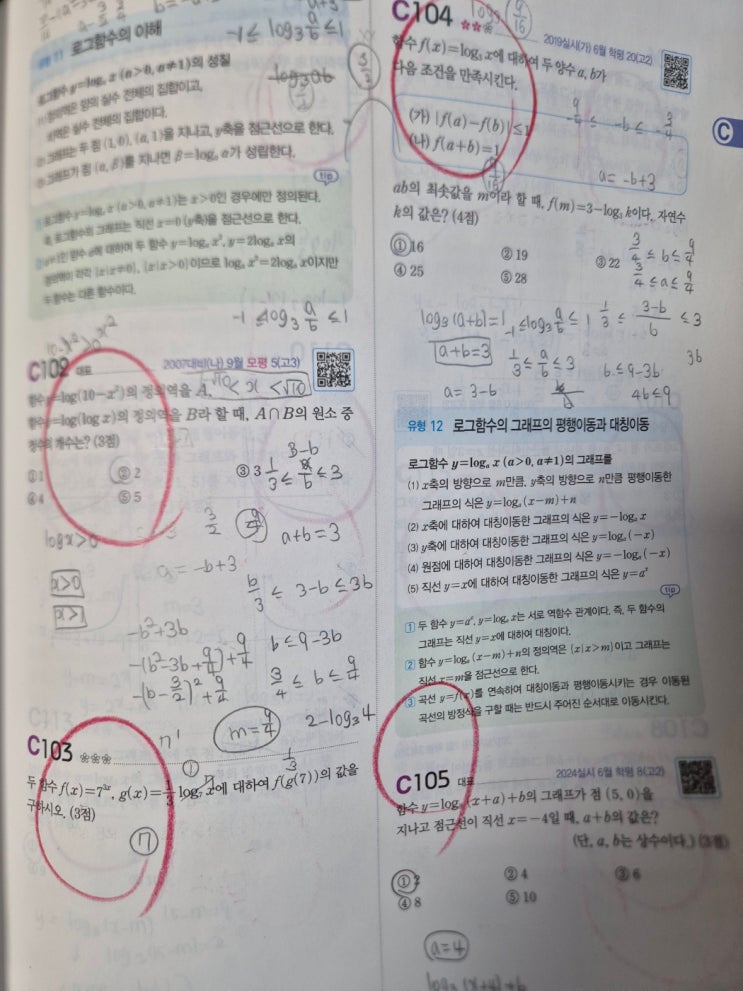 유형 11 로그함수의 이해
로그함수 y=logₐ x (a>0, a≠1)의 성질
정의역은 양의 실수 전체의 집합이고,
치역은 실수 전체의 집합이다.
그래프는 두 점 (1, 0), (a, 1)을 지나고, y축을 점근선으로 한다.
그래프가 점 (α, β)를 지나면 β=logₐ α가 성립한다.
tip
로그함수 y=logₐ x (a>0, a≠1)는 x>0인 경우에만 정의된다.
즉, 로그함수의 그래프는 직선 x=0 (y축)을 점근선으로 한다.
a≠1인 양수 a에 대하여 두 함수 y=logₐ x², y=2logₐ x의
정의역이 각각 {x|x≠0}, {x|x>0}이므로 logₐ x²=2logₐ x이지만
두 함수는 다른 함수이다.
-1 ≤ log₃ a/b ≤ 1
log₃ab
3/2
-1 ≤ log₃ a/b ≤ 1
C102 대표
2007대비(나) 9월 모평 5(고3)
함수 y=log(10-x²)의 정의역을 A,
-√10 < x < √10
함수 y=log(log x)의 정의역을 B라 할 때, A∩B의 원소 중
정수의 개수는? (3점)
① 1
② 2
③ 3
④ 4
⑤ 5
3-b
1/3 ≤ a/b ≤ 3
logx>0
3/2
9/4
a+b=3
x>0
x>1
a = -b+3
b/3 ≤ 3-b ≤ 3b
-b²+3b
b ≤ 9-3b
-(b²-3b+9/4)+9/4
3/4 ≤ b ≤ 9/4
-(b-3/2)²+9/4
m=9/4
2-log₃4
C103
두 함수 f(x)=7³ˣ, g(x)=1/3 log₇ x에 대하여 f(g(7))의 값을
구하시오. (3점)
7
C104
2019실시(가) 6월 학평 20(고2)
함수 f(x)=log₃ x에 대하여 두 양수 a, b가
다음 조건을 만족시킨다.
(가) |f(a)-f(b)|≤1
(나) f(a+b)=1
-9/4 ≤ -b ≤ -3/4
a = -b+3
ab의 최솟값을 m이라 할 때, f(m)=3-log₃ k이다. 자연수
k의 값은? (4점)
① 16
② 19
③ 22
④ 25
⑤ 28
3/4 ≤ b ≤ 9/4
3/4 ≤ a ≤ 9/4
log₃(a+b)=1
-1 ≤ log₃ a/b ≤ 1
1/3 ≤ 3-b/b ≤ 3
a+b=3
1/3 ≤ a/b ≤ 3
b ≤ 9-3b
3b
a = 3-b
4b ≤ 9
C
유형 12 로그함수의 그래프의 평행이동과 대칭이동
로그함수 y=logₐ x (a>0, a≠1)의 그래프를
(1) x축의 방향으로 m만큼, y축의 방향으로 n만큼 평행이동한
그래프의 식은 y=logₐ (x-m)+n
(2) x축에 대하여 대칭이동한 그래프의 식은 y=-logₐ x
(3) y축에 대하여 대칭이동한 그래프의 식은 y=logₐ (-x)
(4) 원점에 대하여 대칭이동한 그래프의 식은 y=-logₐ (-x)
(5) 직선 y=x에 대하여 대칭이동한 그래프의 식은 y=aˣ
tip
1 두 함수 y=aˣ, y=logₐ x는 서로 역함수 관계이다. 즉, 두 함수의
그래프는 직선 y=x에 대하여 대칭이다.
2 함수 y=logₐ (x-m)+n의 정의역은 {x|x>m}이고 그래프는
직선 x=m을 점근선으로 한다.
3 곡선 y=f(x)를 연속하여 대칭이동과 평행이동시키는 경우 이동된
곡선의 방정식을 구할 때는 반드시 주어진 순서대로 이동시킨다.
C105 대표
2024실시 6월 학평 8(고2)
함수 y=log₃ (x+a)+b의 그래프가 점 (5, 0)을
지나고 점근선이 직선 x=-4일 때, a+b의 값은?
(단, a, b는 상수이다.) (3점)
① 2
② 4
③ 6
④ 8
⑤ 10
a=4